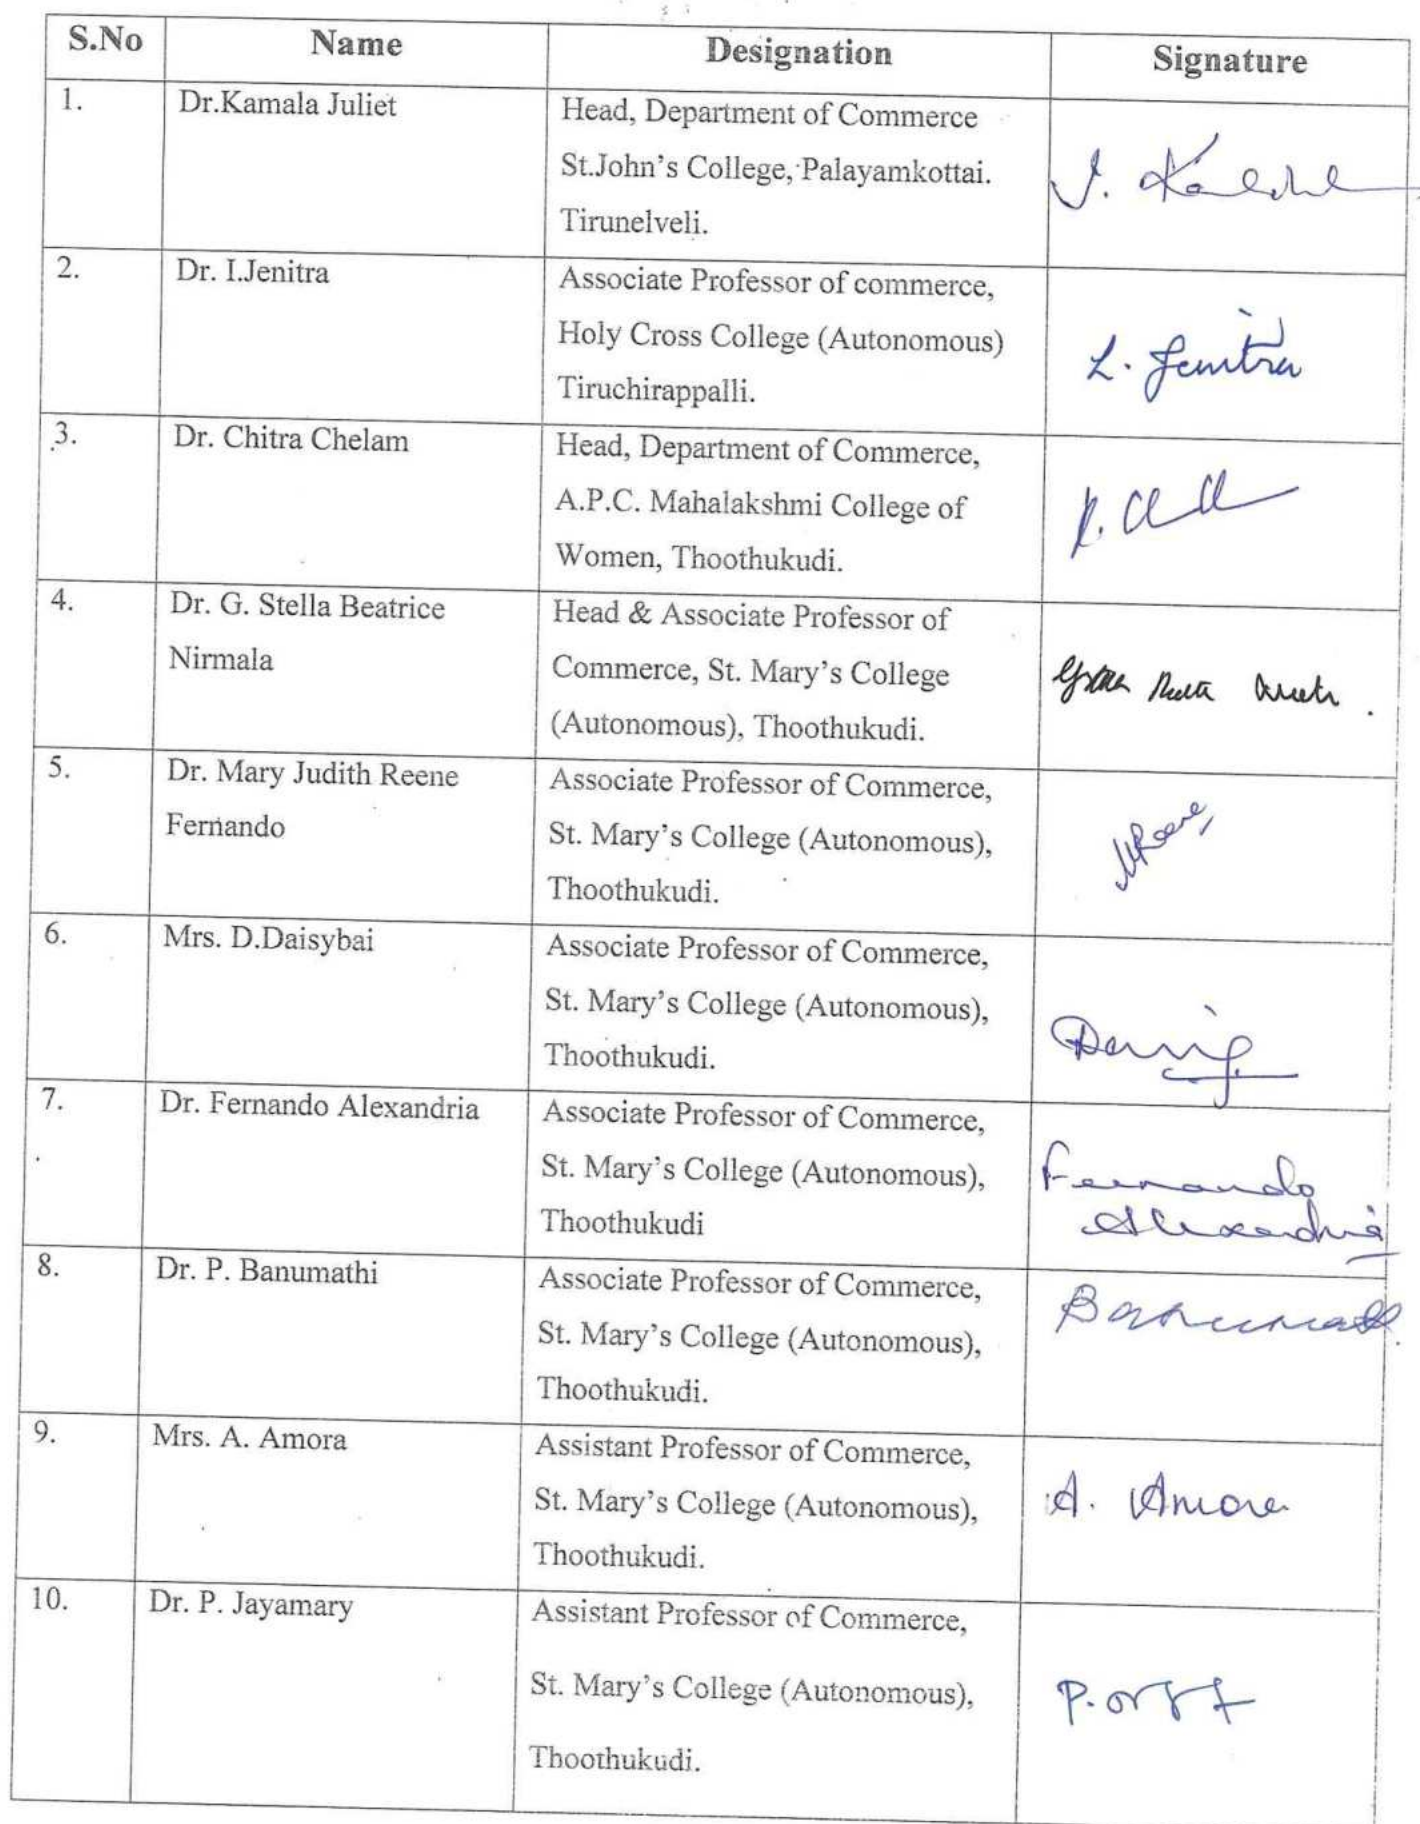 S.No Name Designation Signature
1. Dr.Kamala Juliet Head, Department of Commerce
St.John's College, Palayamkottai.
Tirunelveli.
2. Dr. I.Jenitra Associate Professor of commerce,
Holy Cross College (Autonomous)
Tiruchirappalli.
I. Jenitra
3. Dr. Chitra Chelam Head, Department of Commerce,
A.P.C. Mahalakshmi College of
Women, Thoothukudi.
4. Dr. G. Stella Beatrice Head & Associate Professor of
Nirmala Commerce, St. Mary's College
(Autonomous), Thoothukudi.
5. Dr. Mary Judith Reene Associate Professor of Commerce,
Fernando St. Mary's College (Autonomous),
Thoothukudi.
MReene
6. Mrs. D.Daisybai Associate Professor of Commerce,
St. Mary's College (Autonomous),
Thoothukudi.
7. Dr. Fernando Alexandria Associate Professor of Commerce,
St. Mary's College (Autonomous),
Thoothukudi
Fernando
Alexandria
8. Dr. P. Banumathi Associate Professor of Commerce,
St. Mary's College (Autonomous),
Thoothukudi.
Banumathi
9. Mrs. A. Amora Assistant Professor of Commerce,
St. Mary's College (Autonomous),
Thoothukudi.
A. Amora
10. Dr. P. Jayamary Assistant Professor of Commerce,
St. Mary's College (Autonomous),
Thoothukudi.